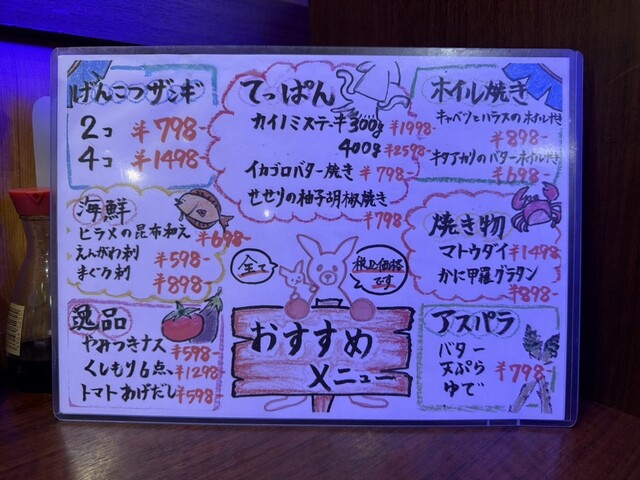 げんこつザンギ
2コ ¥798-
4コ ¥1498-
てっぱん
カイノミステーキ 300g ¥1998-
400g ¥2598-
イカゴロバター焼き ¥798-
せせりの柚子胡椒焼き
¥798
ホイル焼き
キャベツとバラスのホイル焼き
¥898-
キタアカリのバターホイル焼き
¥698-
海鮮
ヒラメの昆布和え ¥698-
えんがわ刺 ¥598-
まぐろ刺 ¥898-
焼き物
マトウダイ ¥1498
かに甲羅グラタン
¥898-
全て
税込価格
です
逸品
やみつきナス ¥598-
くしもり6点、¥1298-
トマトあげだし ¥598-
おすすめ
メニュー
アスパラ
バター
天ぷら ¥798-
ゆで